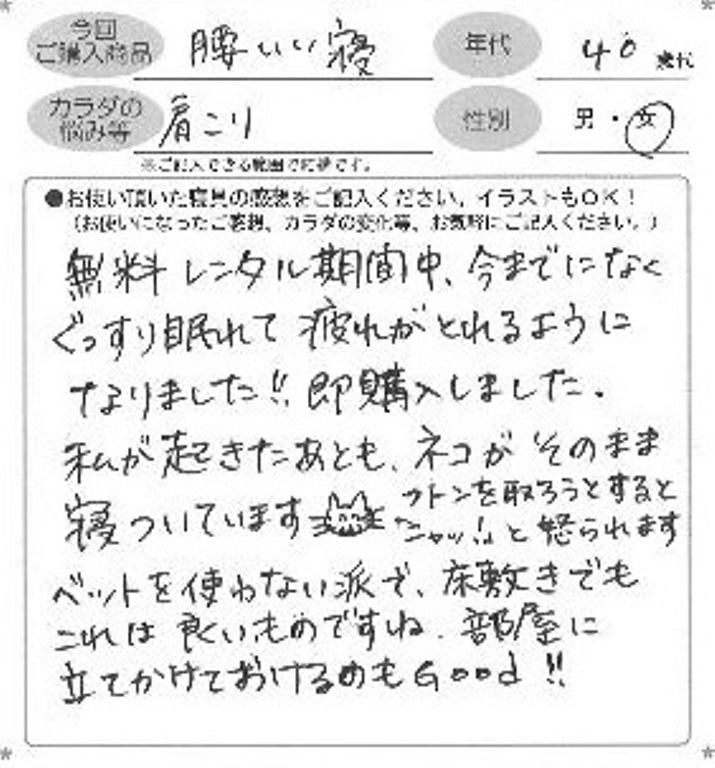 今回
ご購入商品
腰いい寝
年代
40歳代
カラダの
悩み等
肩こり
性別
男・女
※ご記入できる範囲で結構です。
●お使い頂いた寝具の感想をご記入ください。イラストもOK!
(お使いになったご感想、カラダの変化等、お気軽にご記入ください。)
無料レンタル期間中、今までになく
ぐっすり眠れて疲れがとれるように
なりました!!即購入しました。
私が起きたあとも、ネコがそのまま
寝ついています
フトンを取ろうとすると
ニャッ!!と怒られます
ベットを使わない派で、床敷きでも
これは良いものですね。部屋に
立てかけておけるのもGood!!